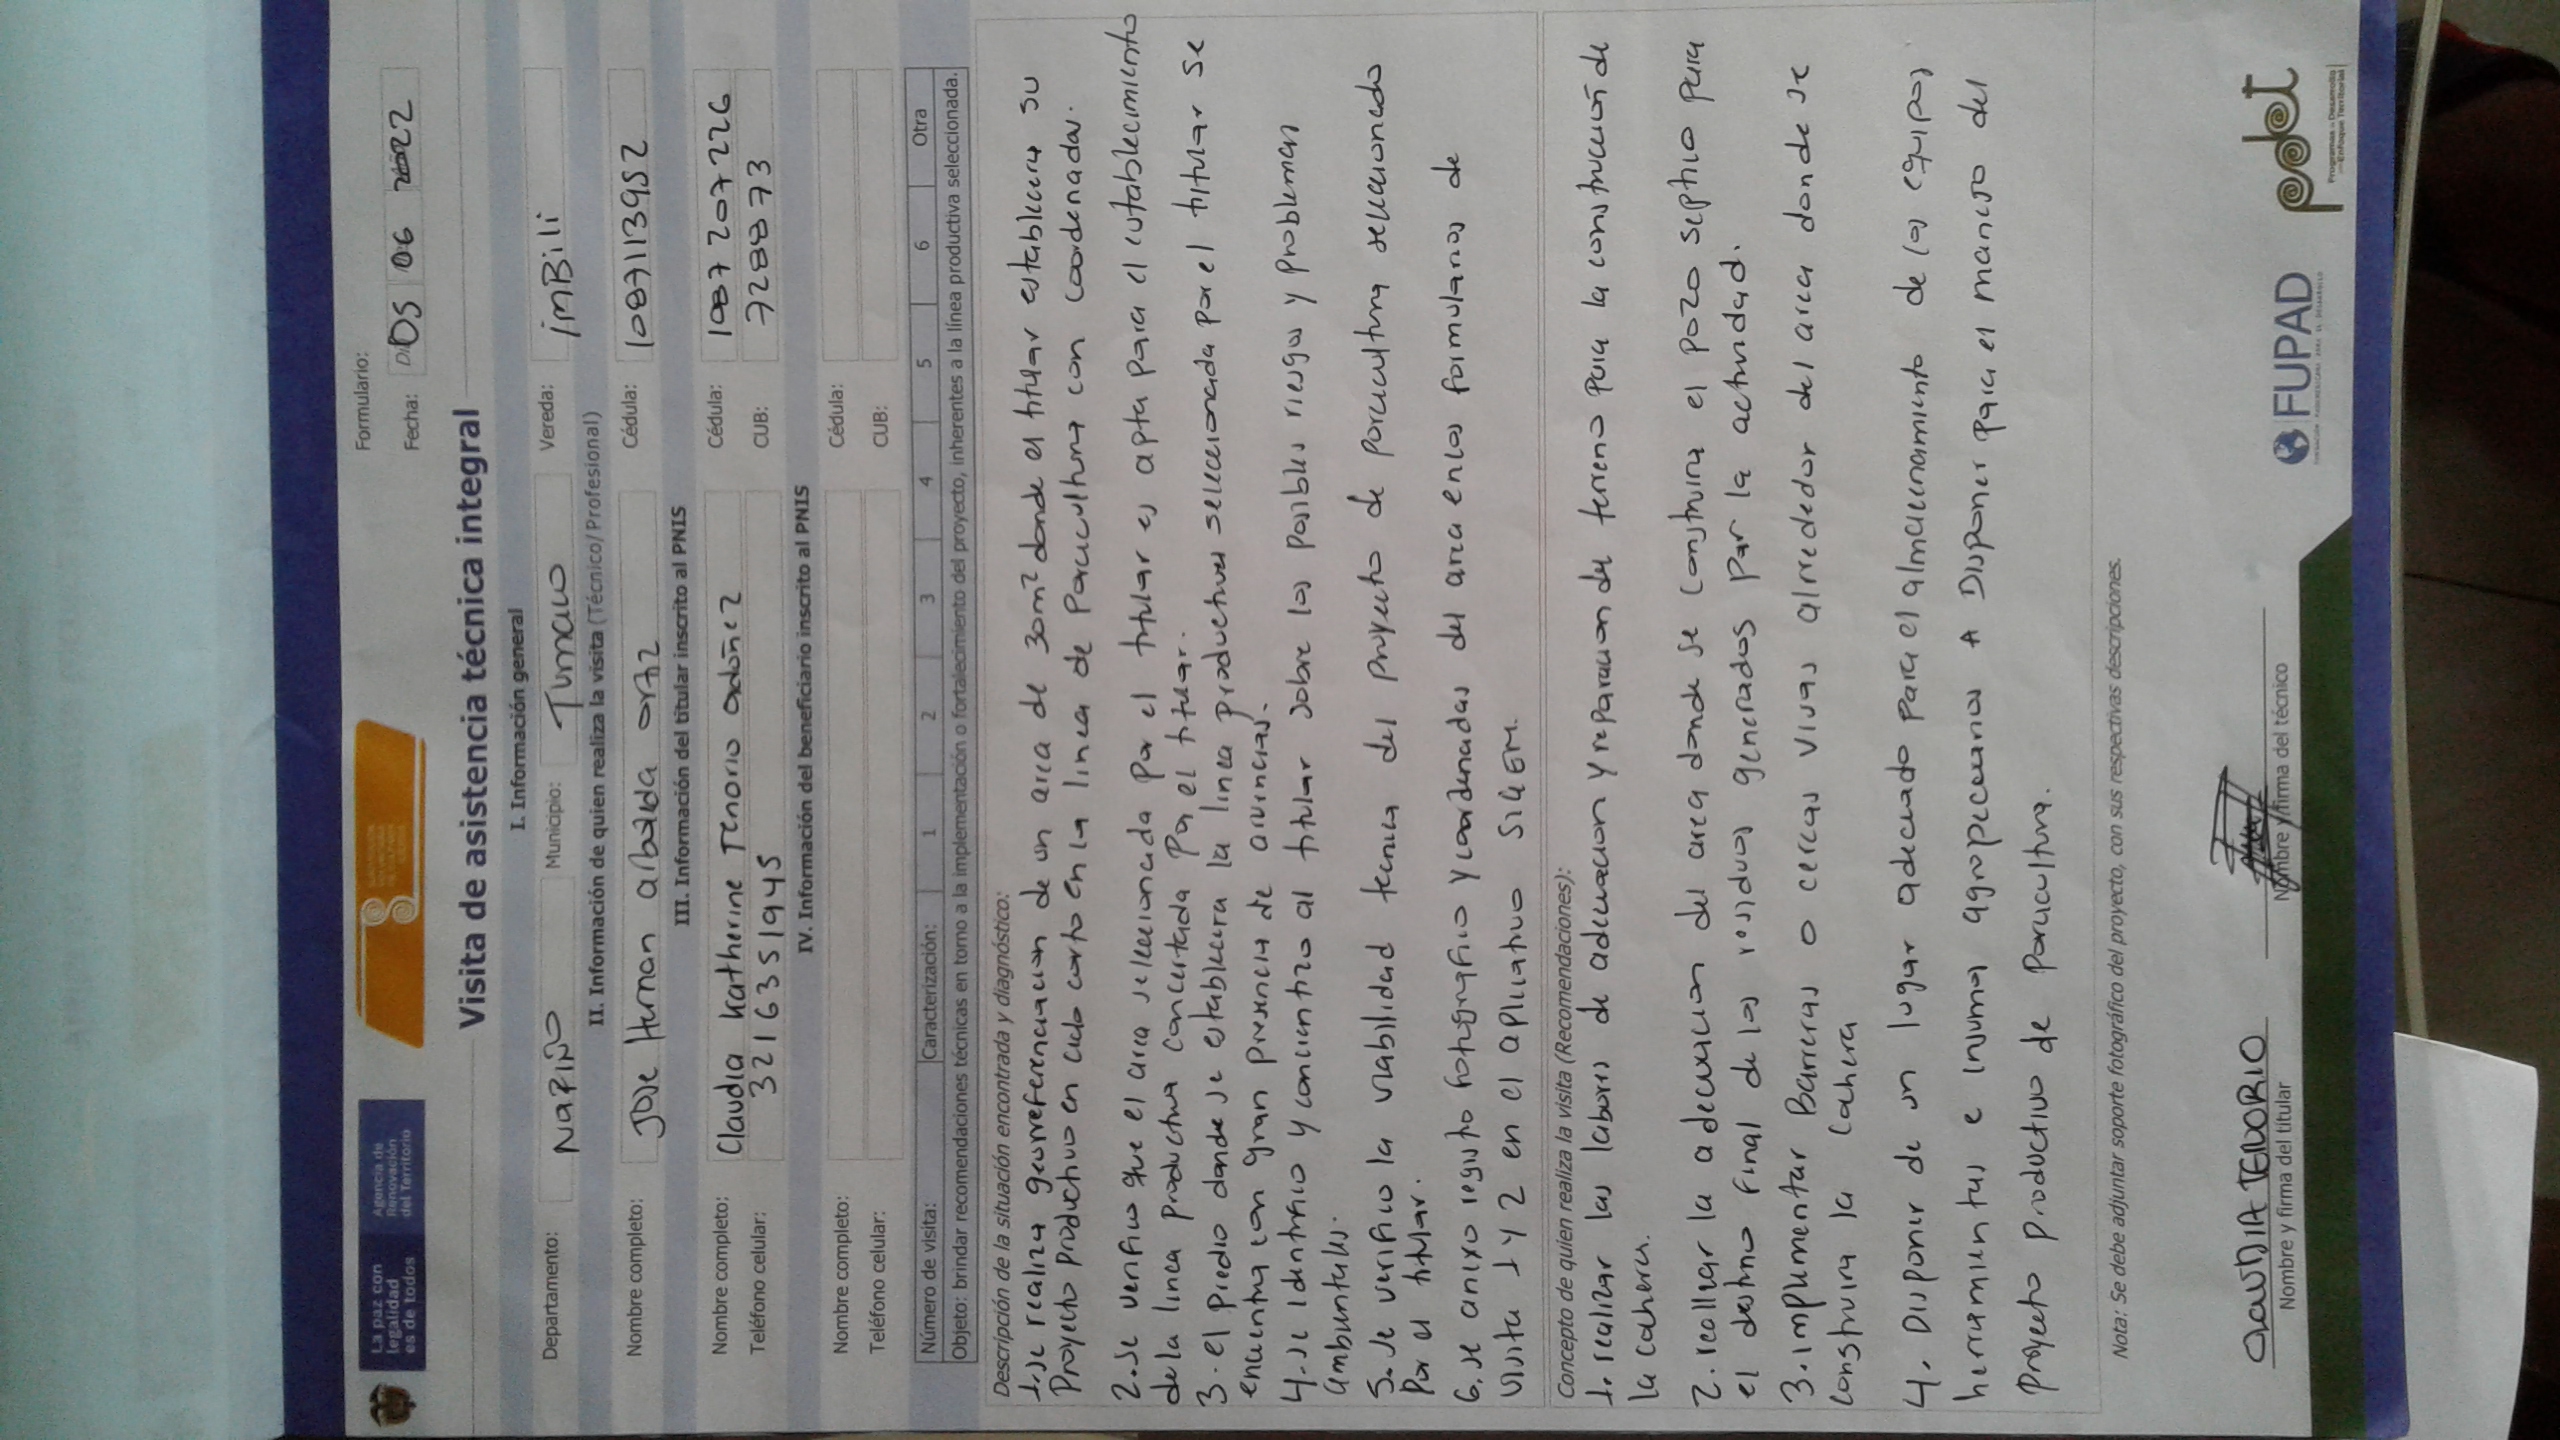 La paz con
legalidad
es de todos
Agencia de
Renovación
del Territorio
Formulario:
Fecha: 05 06 2022
Visita de asistencia técnica integral
I. Información general
Departamento: NARIÑO Municipio: Tumaco Vereda: imBili
II. Información de quien realiza la visita (Técnico/Profesional)
Nombre completo: Jose Hernan arboleda ortiz Cédula: 1087113952
III. Información del titular inscrito al PNIS
Nombre completo: Claudia Katherine Tenorio ordoñez Cédula: 1087207226
Teléfono celular: 3216351945 CUB: 7288873
IV. Información del beneficiario inscrito al PNIS
Nombre completo: Cédula:
Teléfono celular: CUB:
Número de visita: Caracterización: 1 2 3 4 5 6 Otra
Objeto: brindar recomendaciones técnicas en torno a la implementación o fortalecimiento del proyecto, inherentes a la línea productiva seleccionada.
Descripción de la situación encontrada y diagnóstico:
1. se realiza georreferenciacion de un area de 30m² donde el titular establecera su
Proyecto productivo en ciclo corto en la linea de Porcicultura con coordenadas.
2. se verifico que el area seleccionada por el titular es apta para el establecimiento
de la linea productiva concertada Por el titular.
3. el predio donde se establecera la linea productiva seleccionada por el titular se
encuentra con gran presencia de arvences.
4. se identifico y concientizo al titular sobre los posibles riesgos y problemas
ambientales.
5. se verifico la viabilidad tecnica del proyecto de porcicultura seleccionado
Por el titular.
6. se anixo registo fotografico y coordenadas del area en los formularios de
visita 1 y 2 en el aplicativo SIGEM.
Concepto de quien realiza la visita (Recomendaciones):
1. realizar las labores de adecuacion y reparacion de terreno para la construcción de
la cochera.
2. realizar la adecuacion del area donde se construira el pozo septico para
el destino final de los residuos generados por la actividad.
3. implementar Barreras o cercas vivas alrrededor del area donde se
construira la cochera
4. Disponer de un lugar adecuado para el almacenamiento de los equipos,
herramientas e insumos agropecuarios A Disponer para el manejo del
proyecto productivo de Porcicultura.
Nota: Se debe adjuntar soporte fotográfico del proyecto, con sus respectivas descripciones.
CLAUDIA TENORIO
Nombre y firma del titular
Nombre y firma del técnico
FUPAD
pdet
Programas de Desarrollo
con Enfoque Territorial